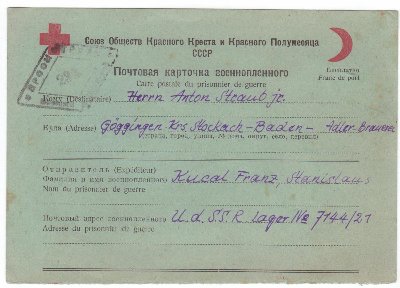 Союз Обществ Красного Креста и Красного Полумесяца
СССР
Почтовая карточка военнопленного
Carte postale du prisonnier de guerre
Бесплатно
Franc de port
Кому (Destinataire) Herrn Anton Straub jr.
Куда (Adresse) Göggingen Krs Stockach-Baden- Adler-Brauerei
(страна, город, улица, № дом, округ, село, деревня)
Отправитель (Expéditeur)
Фамилия и имя военнопленного Kucal Franz, Stanislaus
Nom du prisonnier de guerre
Почтовый адрес военнопленного U.d.S.S.R Lager No 7144/21
Adresse du prisonnier de guerre